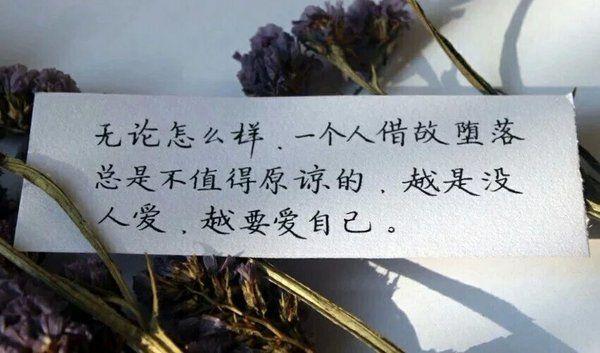 无论怎么样、一个人借故堕落
总是不值得原谅的、越是没
人爱、越要爱自己。